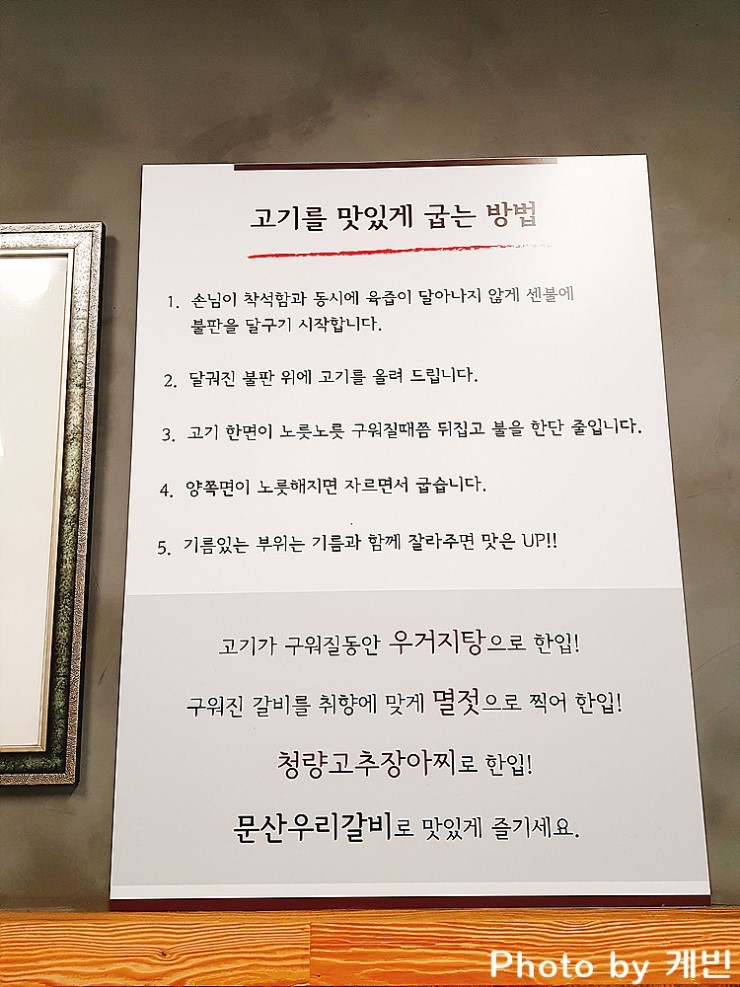 고기를 맛있게 굽는 방법
1. 손님이 착석함과 동시에 육즙이 달아나지 않게 센불에
불판을 달구기 시작합니다.
2. 달궈진 불판 위에 고기를 올려 드립니다.
3. 고기 한면이 노릇노릇 구워질때쯤 뒤집고 불을 한단 줄입니다.
4. 양쪽면이 노릇해지면 자르면서 굽습니다.
5. 기름있는 부위는 기름과 함께 잘라주면 맛은 UP!!
고기가 구워질동안 우거지탕으로 한입!
구워진 갈비를 취향에 맞게 멸젓으로 찍어 한입!
청량고추장아찌로 한입!
문산우리갈비로 맛있게 즐기세요.
Photo by 케빈